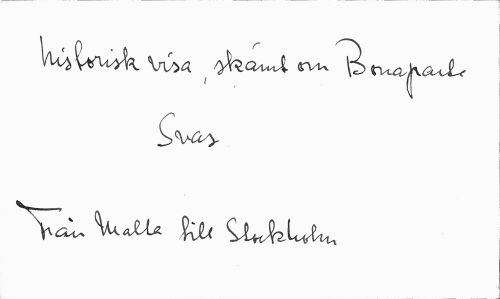 historisk visa, skämt om Bonaparte
Svar
Från Malta till Stockholm